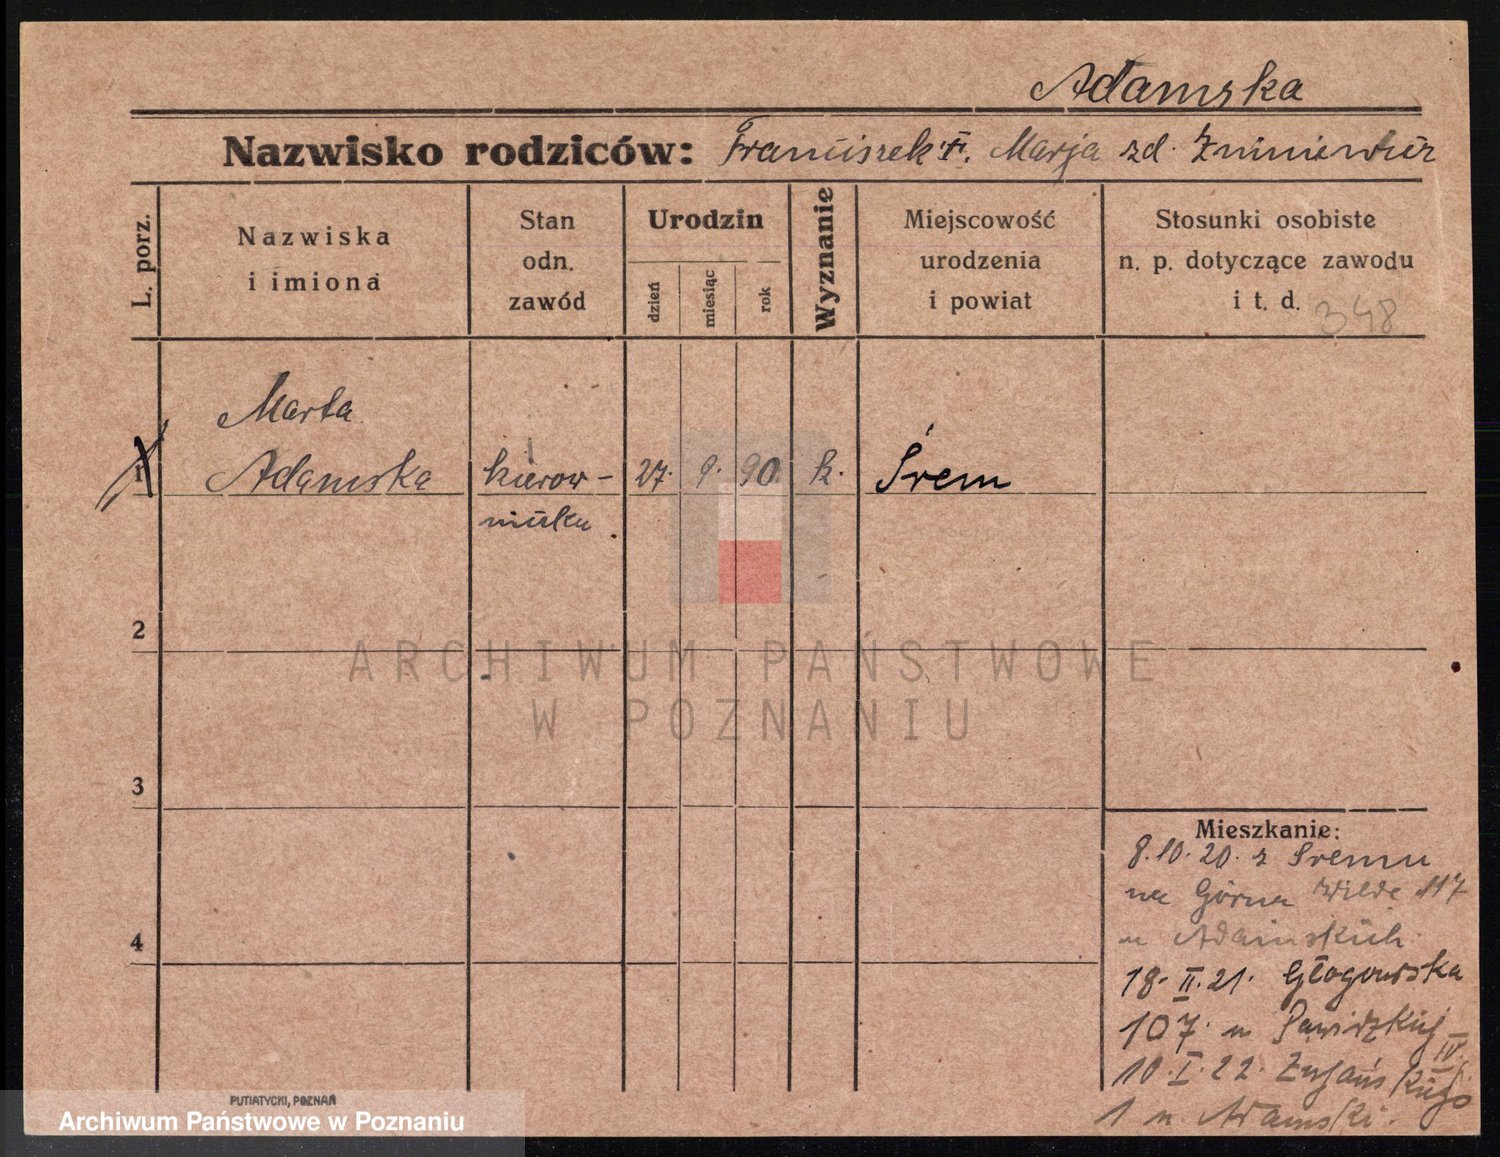 Adamska
Nazwisko rodziców: Franciszek †. Marja zd. Żniniewicz
L. porz.
Nazwiska
i imiona
Stan
odn.
zawód
Urodzin
dzień
miesiąc
rok
Wyznanie
Miejscowość
urodzenia
i powiat
Stosunki osobiste
n. p. dotyczące zawodu
i t. d. 348
Marta
1 Adamska kierow- 27. 9. 90. k. Śrem
niczka
2
ARCHIWUM PAŃSTWOWE
W POZNANIU
3
Mieszkanie:
8.10.20. z Śremu
na Górna Wilda 117
u Adamskich.
4
18. II. 21. Głogowska
107. u
10. I. 22.
1 u. Adamski.
PUTIATYCKI, POZNAŃ
Archiwum Państwowe w Poznaniu